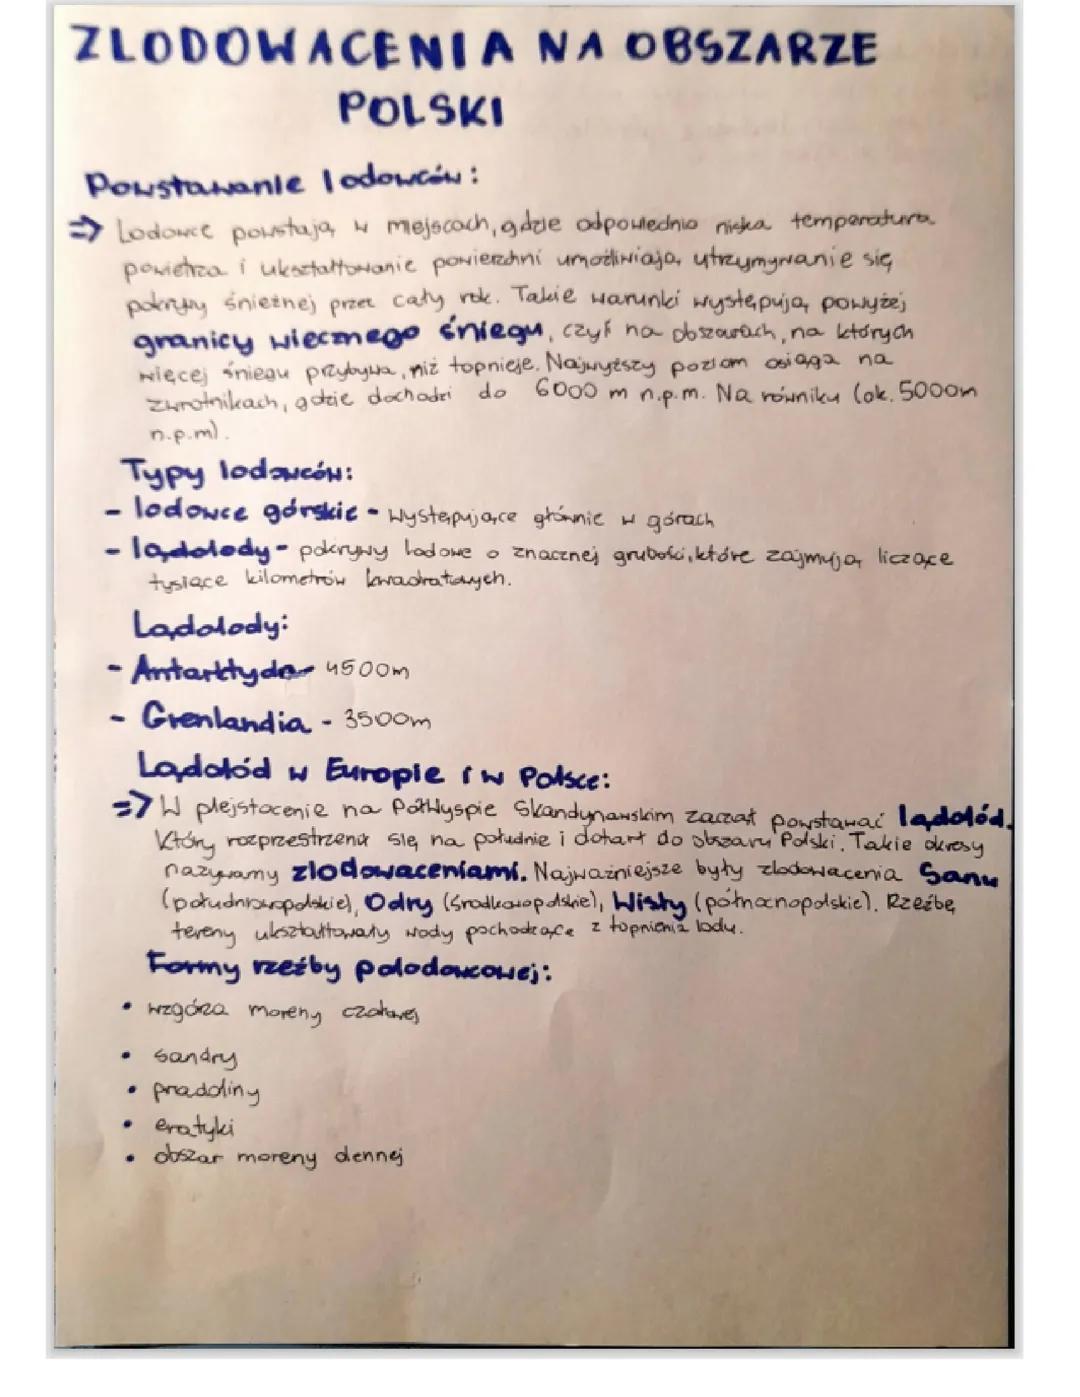 ZLODOWACENIA NA OBSZARZE
POLSKI
Powstawanie lodowców:
=> Lodowce powstają w miejscach, gdzie odpowiednio niska temperatura
powietrza i ukształtowanie powierzchni umożliwiają utrzymywanie się
pokrywy śnieżnej przez cały rok. Takie warunki występują powyżej
granicy wiecznego śniegu, czyli na obszarach, na których
więcej śniegu przybywa, niż topnieje. Najwyższy poziom osiąga na
zwrotnikach, gdzie dochodzi do 6000 m n.p.m. Na równiku (ok. 5000m
n.p.m).
Typy lodowców:
- lodowce górskie - występujące głównie w górach
- lądolody - pokrywy lodowe o znacznej grubości, które zajmują liczące
tysiące kilometrów kwadratowych.
Lądolody:
- Antarktyda - 4500m
- Grenlandia - 3500m
Lądolód w Europie i w Polsce:
=> W plejstocenie na Półwyspie Skandynawskim zaczął powstawać lądolód.
Który rozprzestrzenił się na południe i dotarł do obszaru Polski. Takie okresy
nazywamy zlodowaceniami. Najważniejsze były zlodowacenia Sanu
(południowopolskie), Odry (środkowopolskie), Wisły (północnopolskie). Rzeźbę
tereny ukształtowały wody pochodzące z topnienia lodu.
Formy rzeźby polodowcowej:
• wzgórza moreny czołowej
• sandry
• pradoliny
• eratyki
• obszar moreny dennej